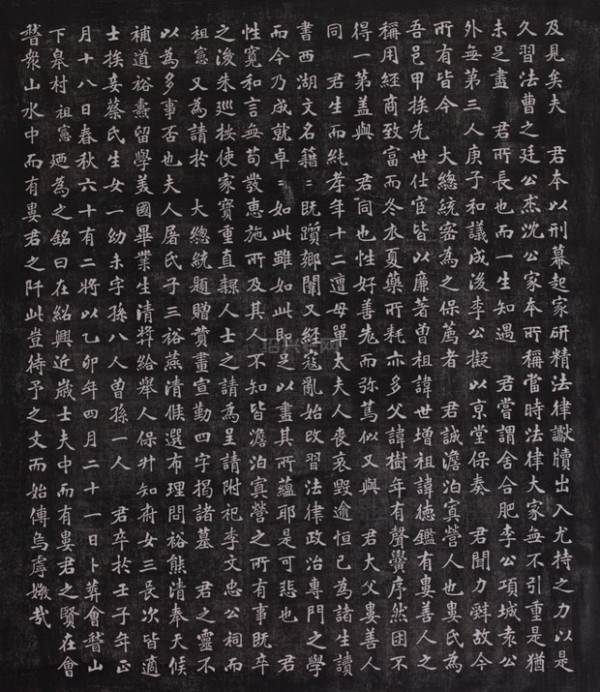 及見矣夫　君本以刑幕起家研精法律讞牘出入尤持之力以是
久習法曹之廷公杰沈公家本所稱當時法律大家無不引重是猶
未足盡　君所長也而一生知遇　君嘗謂舍合肥李公項城袁公
外無第三人庚子和議成後李公擬以京堂保奏　君聞力辭故今
所有皆今　大總統密為之保薦者　君誠澹泊寡營人也婁氏為
吾邑甲挨先世仕宦皆以廉著曾祖諱世增祖諱德鑑有婁善人之
稱用經商致富而冬衣夏藥所耗亦多父諱樹年有聲黌序然困不
得一第蓋與　君同也性好善老而弥篤似又與　君大父婁善人
同　君生而純孝年十二遭母單太夫人喪哀毀逾恒已為諸生讀
書西湖文名籍〻既躓鄉闈又經寇亂始改習法律政治專門之學
而今乃成就卓　如此雖如此即足以盡其所蘊耶是可悲也　君
性寬和言無苟發惠施所及其人不知皆澹泊寡營之所有事既卒
之後朱巡按使家寶重直隸人士之請為呈請附祀李文忠公祠而
祖憲又為請於　大總統題贈賁畫宣勤四字揭諸墓　君之靈不
以為多事否也夫人屠氏子三裕蕪清候選布理問裕熊清奉天候
補道裕燾留學美國畢業生清獎給舉人保升知府女三長次皆適
士挨妾蔡氏生女一幼未字孫八人曾孫一人　君卒於壬子年正
月十八日春秋六十有二將以乙卯年四月二十一日卜葬會稽山
下皋村祖憲廼為之銘曰在紹興近歲士夫中而有婁君之賢在會
嵇眾山水中而有婁君之阡此豈待予之文而始傳烏虖媺哉